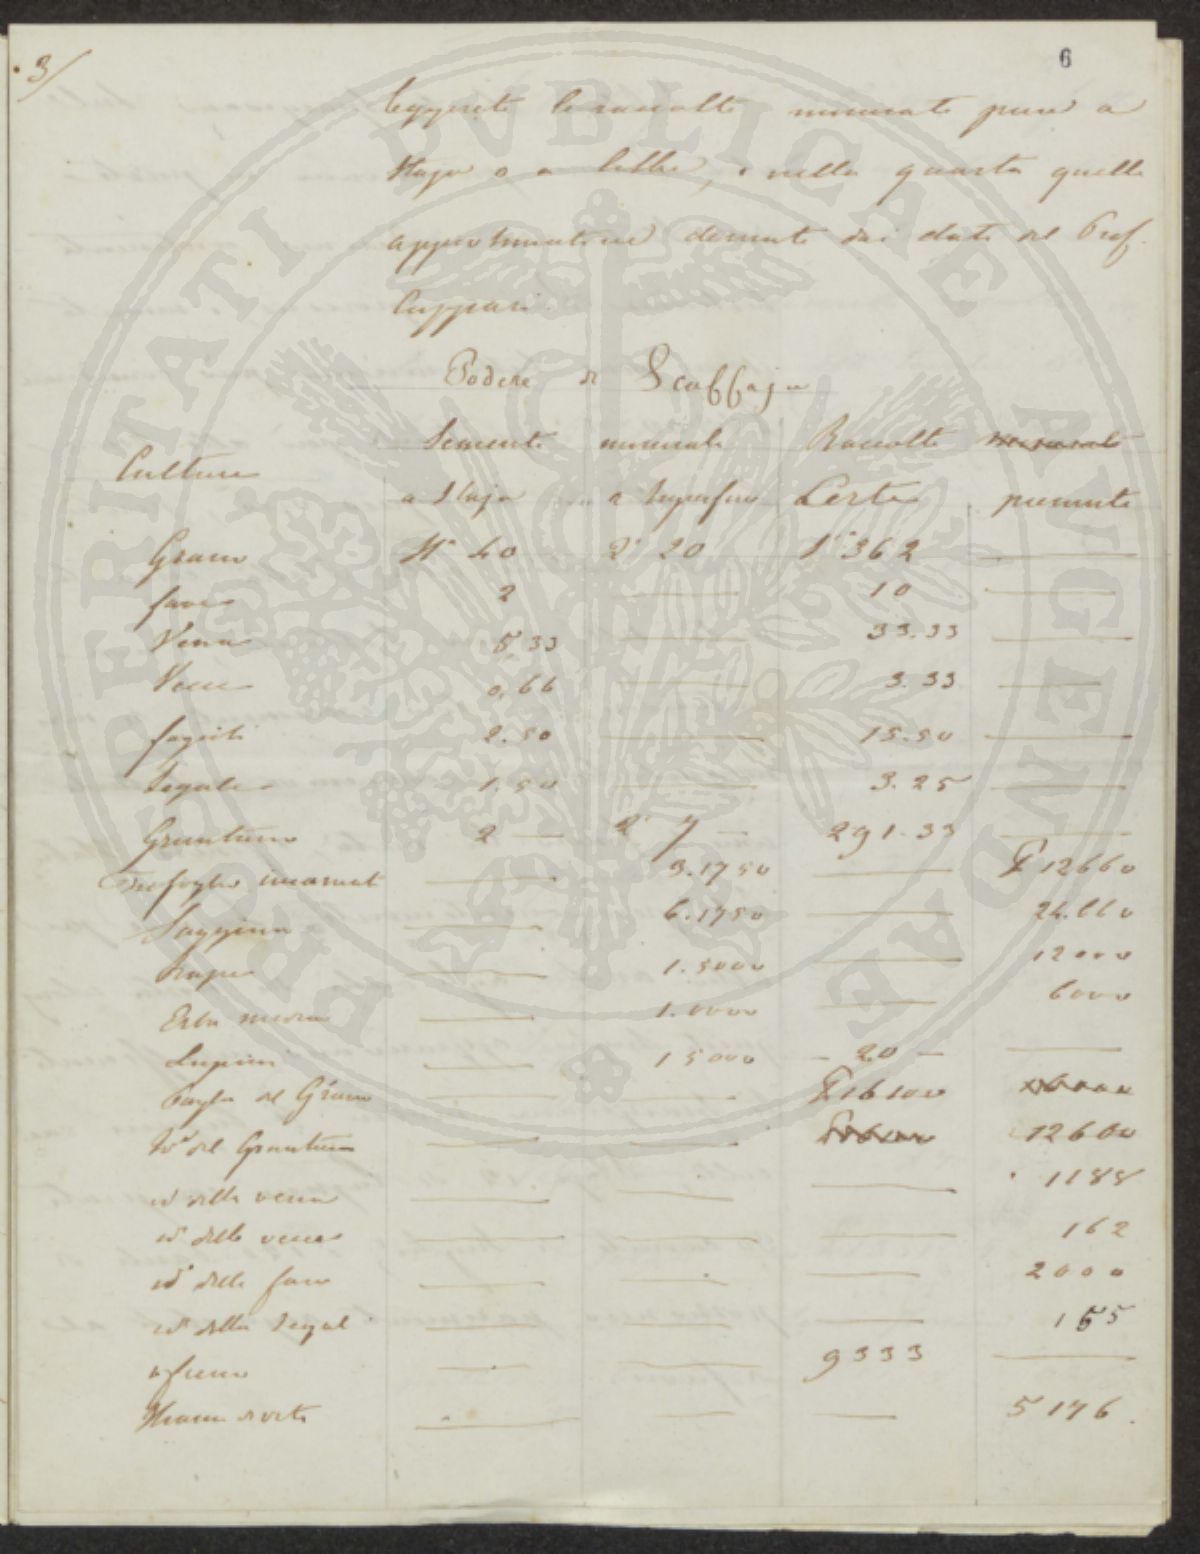 3/
6
leggerete le raccolte misurate pure a
staja o a libbre, e nella quarta quelle
approssimative desunte dai dati del Prof.
Cuppari.
Podere di Scaffaja
Culture
Semente misurate Raccolte
a Staja a Superfice Certe presunte
Grano St 40 2' 20 St 362 —
fave 2 — 10 —
Vena 5,33 — 33.33 —
Vecce 0,66 — 3.33 —
fagioli 2.50 — 15.50 —
Segale 1.50 — 3.25 —
Granturco 2 — 2' 7 — 291.33 —
Trifoglio incarnato — 3.1750 — £ 12660
Saggina — 6.1750 — 24.660
Rape — 1.5000 — 12000
Erba medica — 1.0000 — 6000
Lupini — 15000 — 20 — —
Paglia del Grano — — £ 16100
Id del Granturco — — 12600
id della vena — — — 1188
id delle vecce — — — 162
id delle fave — — — 2000
id della Segale — — — 165
— — 9333 —
— — — 5176.
PROSPERITATI PVBLICAE AVGENDAE